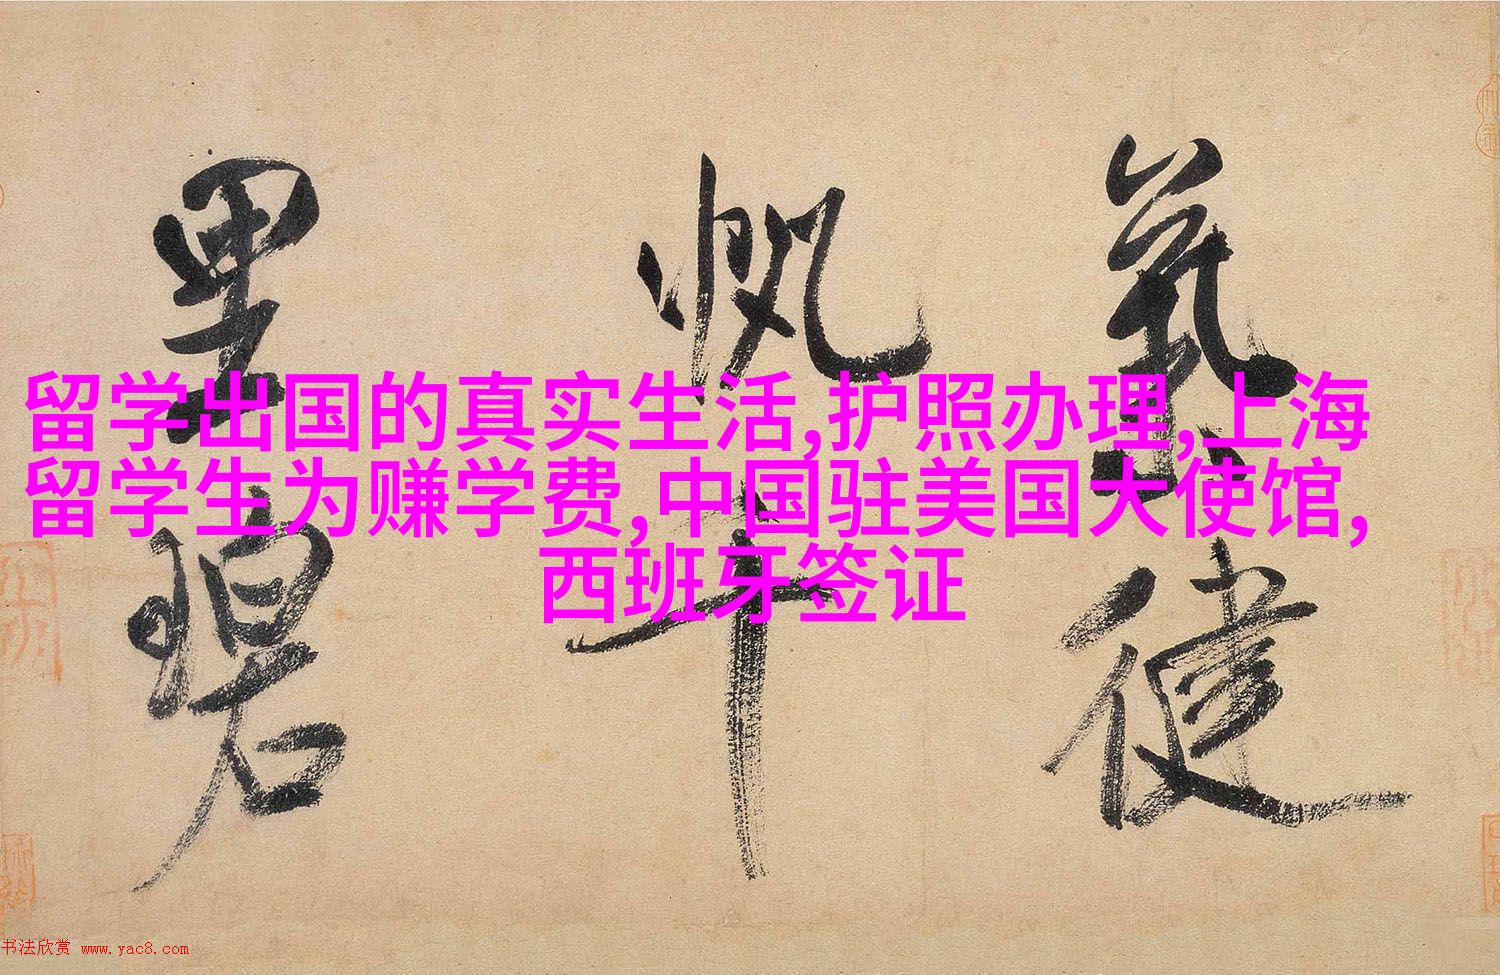 留学出国的真实生活,护照办理,上海
留学生为赚学费,中国驻美国大使馆,
西班牙签证
气健
帆十
里碧
书法欣赏 www.yac8.com